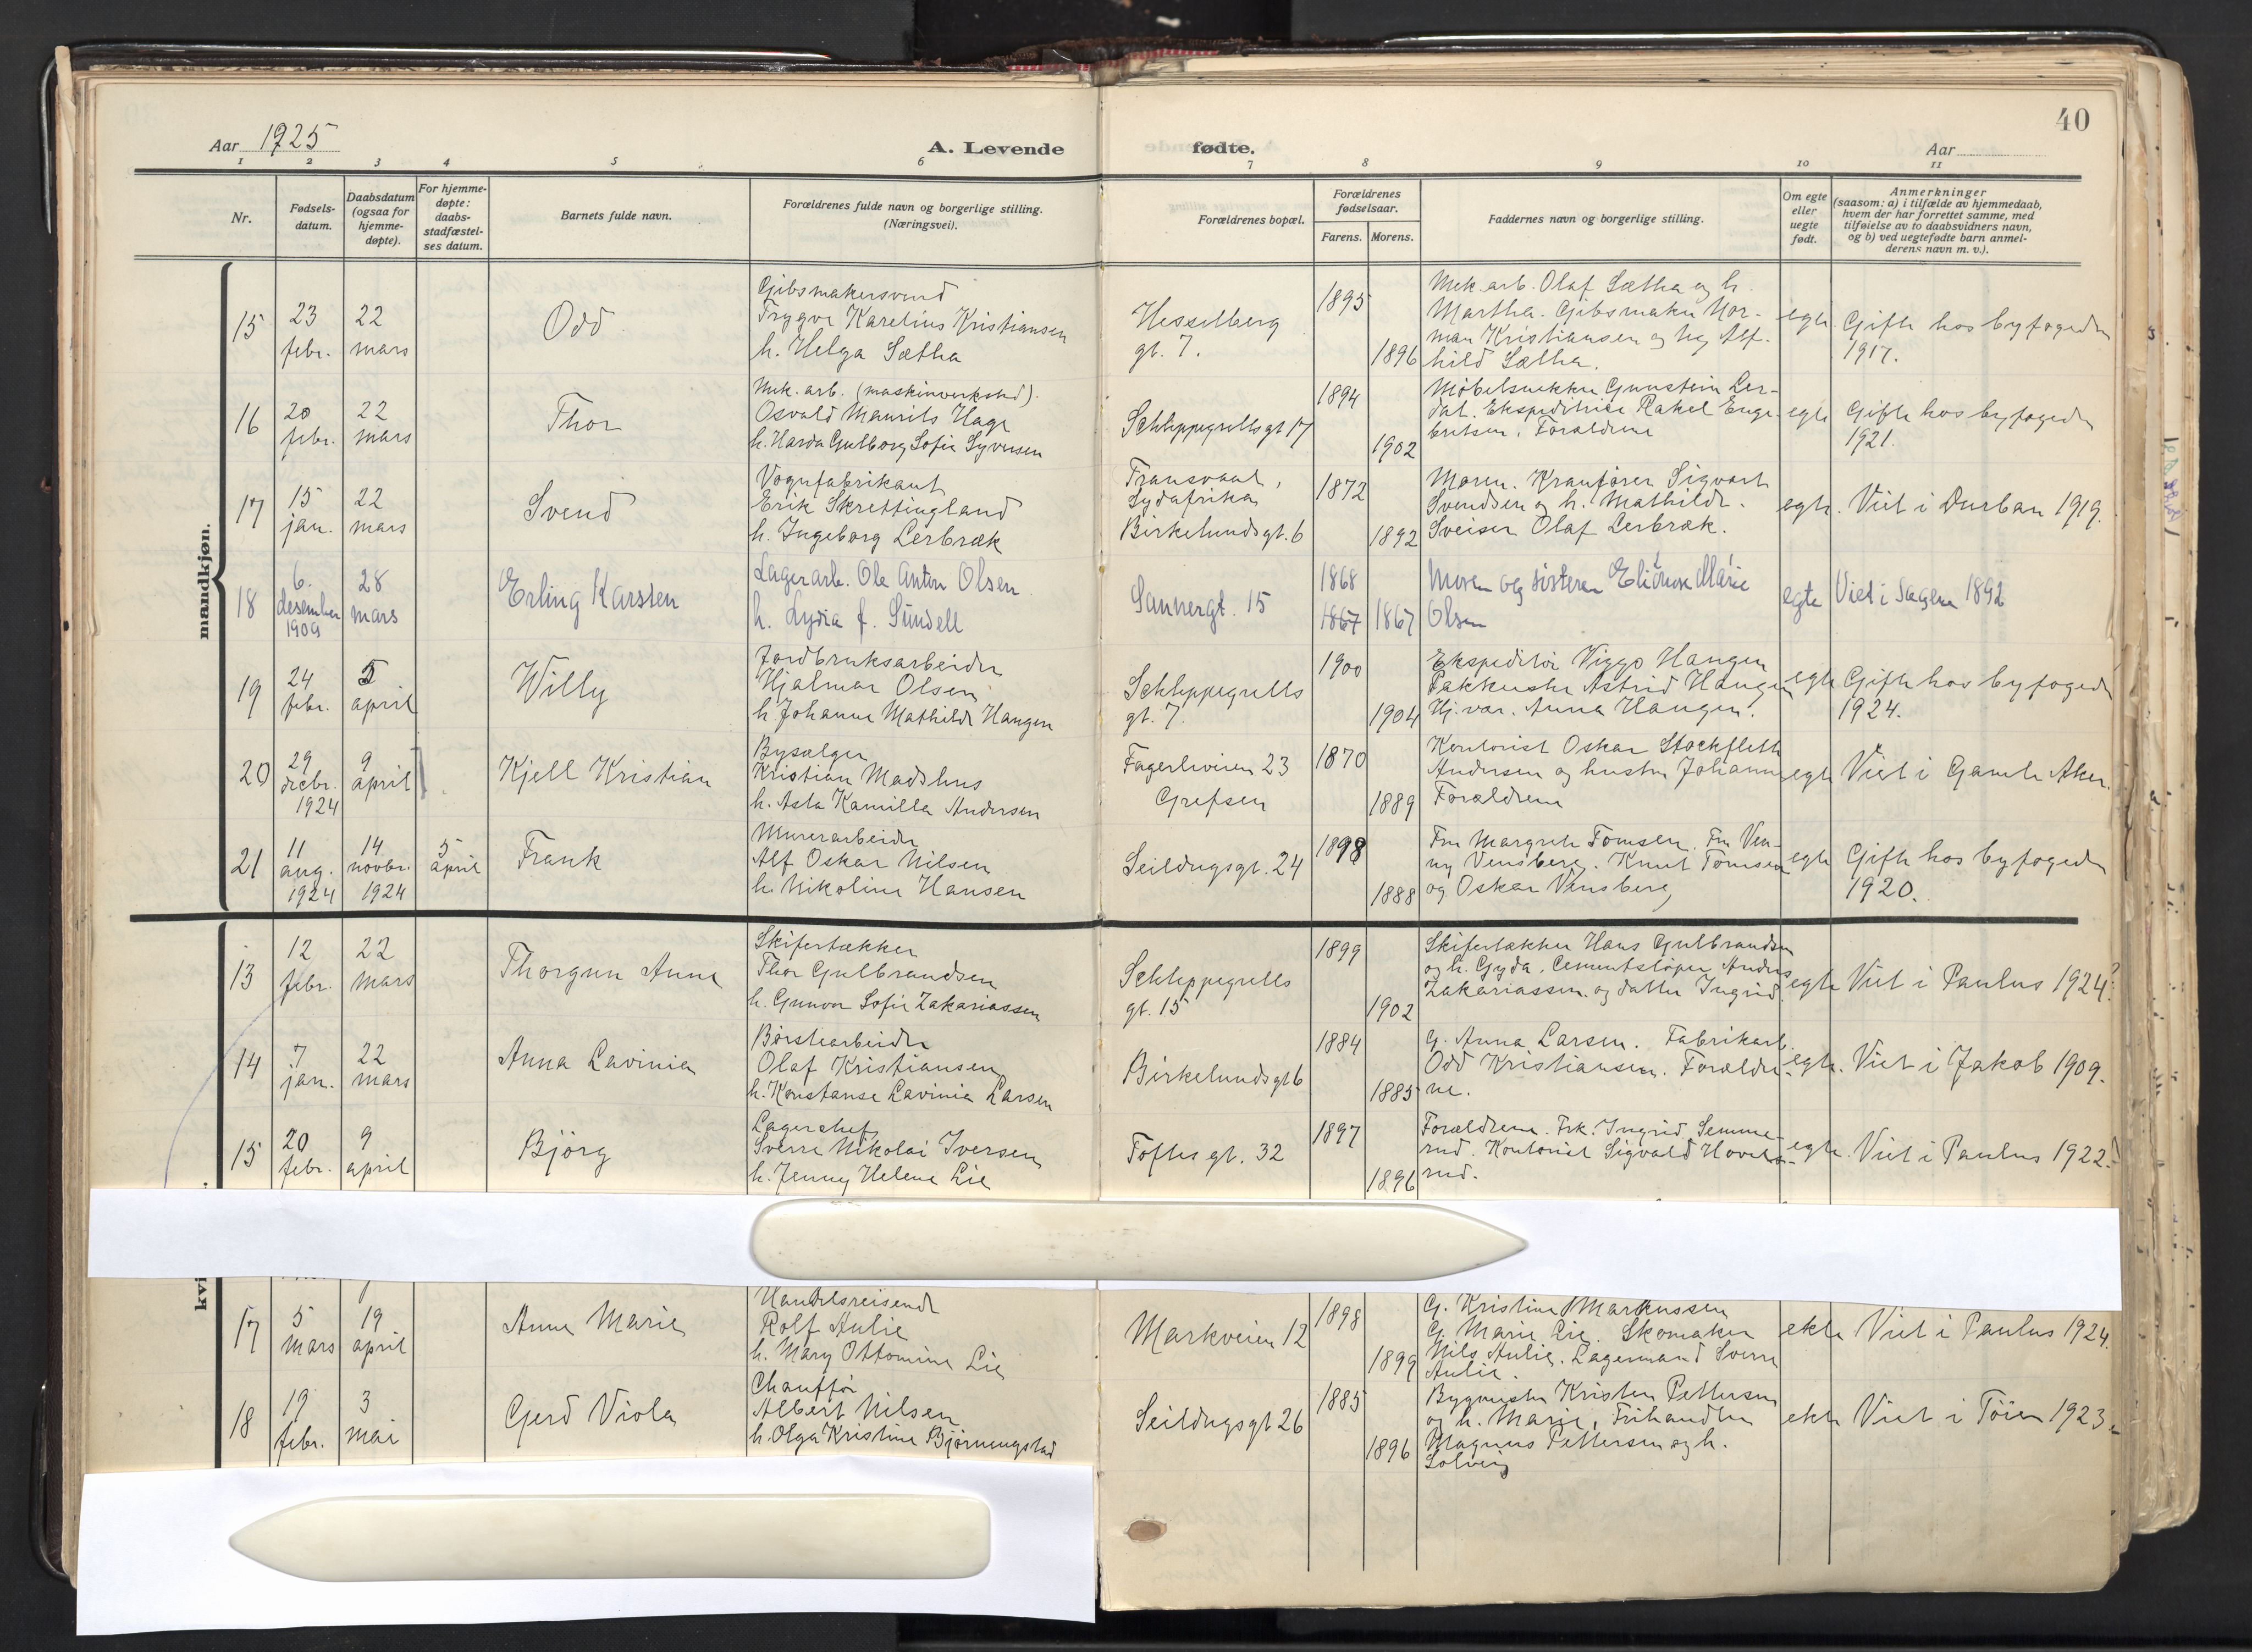 40
Aar 1925
A. Levende
fødte.
Aar
1 2 3 4 5 6 7 8 9 10 11
Nr.
Fødsels-
datum.
Daabsdatum
(ogsaa for
hjemme-
døpte).
For hjemme-
døpte:
daabs-
stadfæstel-
ses datum.
Barnets fulde navn.
Forældrenes fulde navn og borgerlige stilling.
(Næringsvei).
Forældrenes bopæl.
Forældrenes
fødselsaar.
Farens. Morens.
Faddernes navn og borgerlige stilling.
Om egte
eller
uegte
født.
Anmerkninger
(saasom: a) i tilfælde av hjemmedaab,
hvem der har forrettet samme, med
tilføielse av to daabsvidners navn,
og b) ved uegtefødte barn anmel-
derens navn m. v.).
mandkjøn.
15
23
febr.
22
mars
Odd
Gibsmakersvend
Trygve Karelius Kristiansen
h. Helga Sætha
Hesselberg
gt. 7.
1895
1896
Mek. arb. Olaf Sætha og h.
Martha. Gibsmaker Nor-
man Kristiansen og Alf-
hild Sætha.
egte
Gifte hos byfogeden
1917.
16
20
febr.
22
mars
Thor
Mek. arb. (maskinverksted).
Osvald Maurits Hage
h. Harda Gulborg Sofie Syversen
Schleppegrellsgt 17
1894
1902
Møbelsnekker Gunstein Ler-
dal. Ekspeditrice Rakel Enge-
bretsen. Forældrene
egte
Gifte hos byfogeden
1921.
17
15
jan.
22
mars
Svend
Vognfabrikant
Erik Skrettingland
h. Ingeborg Lerbræk
Transvaal,
Sydafrika
Birkelundsgt. 6
1872
1892
Moren. Kranfører Sigvart
Svendsen og h. Mathilde.
Sveiser Olaf Lerbræk.
egte.
Viet i Durban 1919.
18
6.
desember
1909
28
mars
Erling Karsten
Lagerarb. Ole Anton Olsen
h. Lydia f. Sundell
Sannergt. 15
1868
1867
1867
Moren og søsteren Elionore Marie
Olsen
egte
Viet i Sagene 1892
19
24
febr.
5
april
Willy
Jordbruksarbeider
Hjalmar Olsen
h. Johanne Mathilde Haugen
Schleppegrells
gt. 7.
1900
1904
Ekspeditør Viggo Haugen
Pakkerske Astrid Haugen
Hj. vær. Anna Haugen.
egte
Gifte hos byfogeden
1924.
20
29
decbr.
1924
9
april
Kjell Kristian
Bysælger
Kristian Madshus
h. Asta Kamilla Andersen
Fagerliveien 23
Grefsen
1870
1889
Kontorist Oskar Stockfleth
Andersen og hustru Johanne
Forældrene
egte
Viet i Gamle Aker.
21
11
aug.
1924
14
novbr.
1924
5
april
Frank
Murerarbeider
Alf Oskar Nilsen
h. Nikoline Hansen
Seildugsgt. 24
1898
1888
Fru Margrete Tomsen. Fru Ven-
ny Vensberg. Knut Tomsen
og Oskar Vensberg
egte
Gifte hos byfogeden
1920.
13
12
febr.
22
mars
Thorgun Anne
Skifertækker
Thor Gulbrandsen
h. Gunvor Sofie Zakariassen
Schleppegrells
gt. 15
1899
1902
Skifertækker Hans Gulbrandsen
og h. Gyda. Cementstøper Anders
Zakariassen og datter Ingrid
egte
Viet i Paulus 1924?
14
7
jan.
22
mars
Anna Lavinia
Børstearbeider
Olaf Kristiansen
h. Konstanse Lavinia Larsen
Birkelundsgt 6
1884
1885
G. Anna Larsen. Fabrikarb.
Odd Kristiansen. Forældre-
ne.
egte.
Viet i Jakob 1909.
15
20
febr.
9
april
Bjørg
Lagerchef
Sverre Nikolai Iversen
h. Jenny Helene Lie
Toftesgt. 32
1897
1896
Forældrene. Frk. Ingrid Semme-
rud. Kontorist Sigvald
rud.
egte.
Viet i Paulus 1922.
kvi
17
5
mars
19
april
Anne Marie
Handelsreisende
Rolf Aulie
h. Mary Ottomine Lie
Markveien 12
1898
1899
G. Kristine Markussen
G. Marie Lie. Skomaker
Nils Aulie. Lagermand Sverre
Aulie.
ekte
Viet i Paulus 1924.
18
19
febr.
3
mai
Gerd Viola
Chauffør
Albert Nilsen
h. Olga Kristine Bjørnengstad
Seildugsgt 26
1885
1896
Bygmester Kristen Pettersen
og h. Marie, Frihandler
Magnus Pettersen og h.
Solveig
ekte
Viet i Tøien 1923.